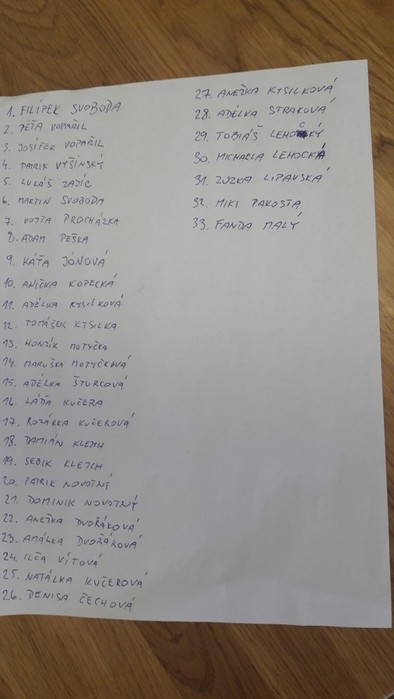 1. FILÍPEK SVOBODA
2. PÉŤA VOPAŘIL
3. JOSÍFEK VOPAŘIL
4. PATRIK VYŠÍNSKÝ
5. LUKÁŠ ZAJÍC
6. MARTIN SVOBODA
7. VOJTA PROCHÁZKA
8. ADAM PEŠKA
9. KÁŤA JÓNOVÁ
10. ANIČKA KOPECKÁ
11. ADÉLKA KYSILKOVÁ
12. TOMÁŠEK KYSILKA
13. HONZÍK MOTYČKA
14. MARUŠKA MOTYČKOVÁ
15. ADÉLKA ŠTURCOVÁ
16. LÁĎA KUČERA
17. ROZÁRKA KUČEROVÁ
18. DAMIÁN KLETCH
19. SEBIK KLETCH
20. PATRIK NOVOTNÝ
21. DOMINIK NOVOTNÝ
22. ANEŽKA DVOŘÁKOVÁ
23. AMÁLKA DVOŘÁKOVÁ
24. ILČA VÍTOVÁ
25. NATÁLKA KUČEROVÁ
26. DENISA ČECHOVÁ
27. ANEŽKA KYSILKOVÁ
28. ADÉLKA STRAKOVÁ
29. TOBIÁŠ LEHOCKÝ
30. MICHAELA LEHOCKÁ
31. ZUZKA LIPAVSKÁ
32. MIKI PAKOSTA
33. FANDA MALÝ